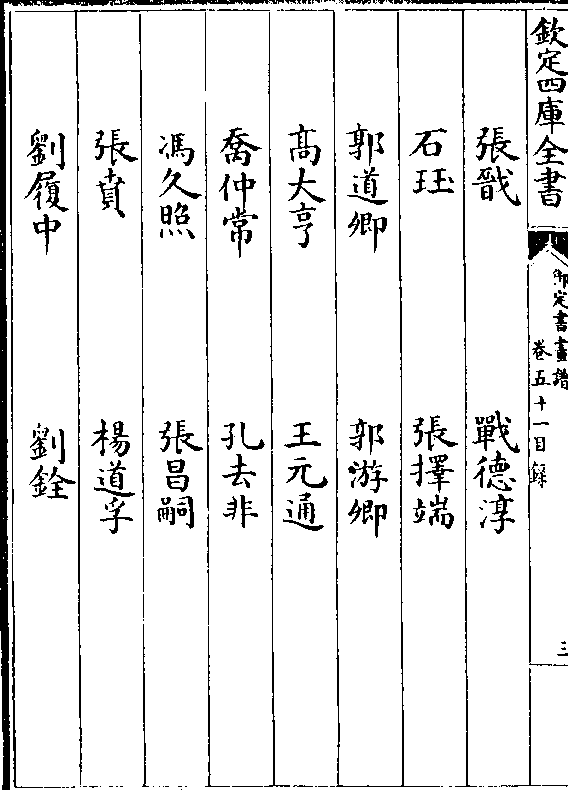 欽定四庫全書
御定書畫譜
卷五十一目錄
三
張戩　戰德淳
石珏　張擇端
郭道卿　郭游卿
高大亨　王元通
喬仲常　孔去非
馮久照　張昌嗣
張賁　楊道孚
劉履中　劉銓